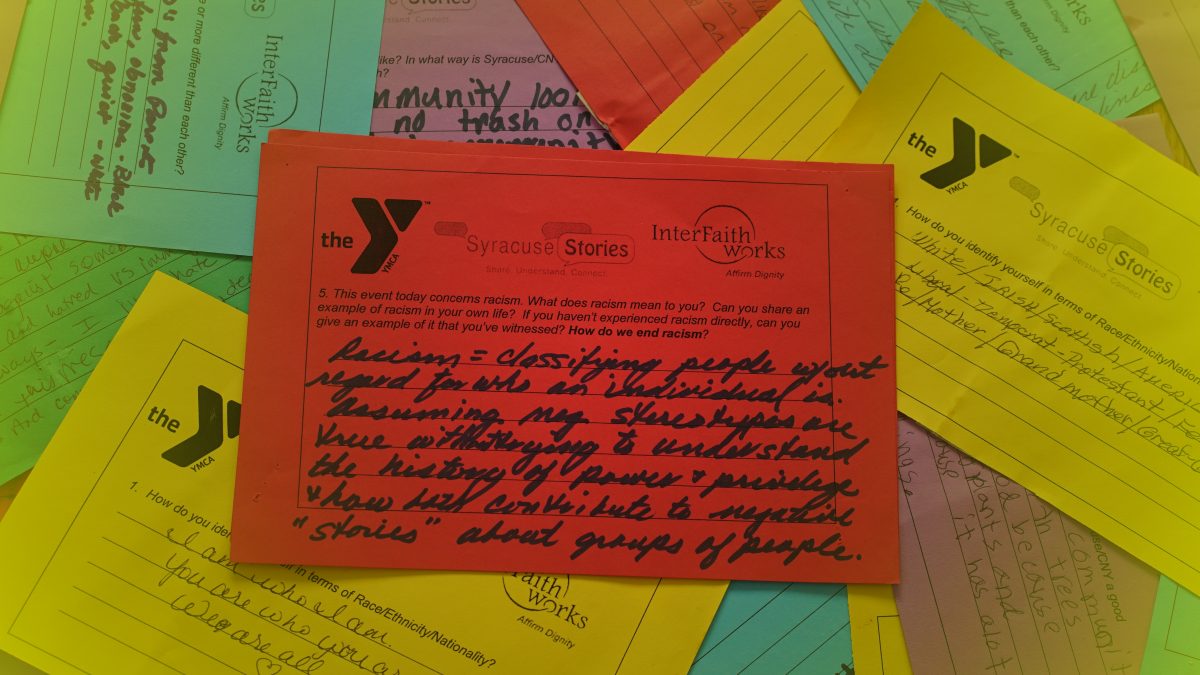 the
YMCA
Syracuse Stories
Share. Understand. Connect.
InterFaith
works
Affirm Dignity
5. This event today concerns racism. What does racism mean to you? Can you share an
example of racism in your own life? If you haven't experienced racism directly, can you
give an example of it that you've witnessed? How do we end racism?
Racism = classifying people w/out
regard for who an individual is.
Assuming neg stereotypes are
true without trying to understand
the history of power + privilege
+ how both contribute to negative
"stories" about groups of people.
from Parent
obnoxious - Black
quiet - White
e or more different than each other?
InterFaith
works
Affirm Dignity
Stories
Understand. Connect.
like? In what way is Syracuse/CN
mmunity loo
no trash on
works
than each other?
the
YMCA
Syracuse Stories
Share. Understand. Connect.
How do you identify yourself in terms of Race/Ethnicity/Nation
White/Irish/Scottish/Ameri
Liberal-Democrat-Protestant/Fe
/Mother/Grandmother/Great
and hatred vs imm
ways - I
this mea
And com
the
YMCA
1. How do you iden
self in terms of Race/Ethnicity/Nationality?
I am who I am
You are who you a
We are all
Faith
works
Affirm Dignity
se/CNY a good
communit
trees
because
plants and
it has a lot